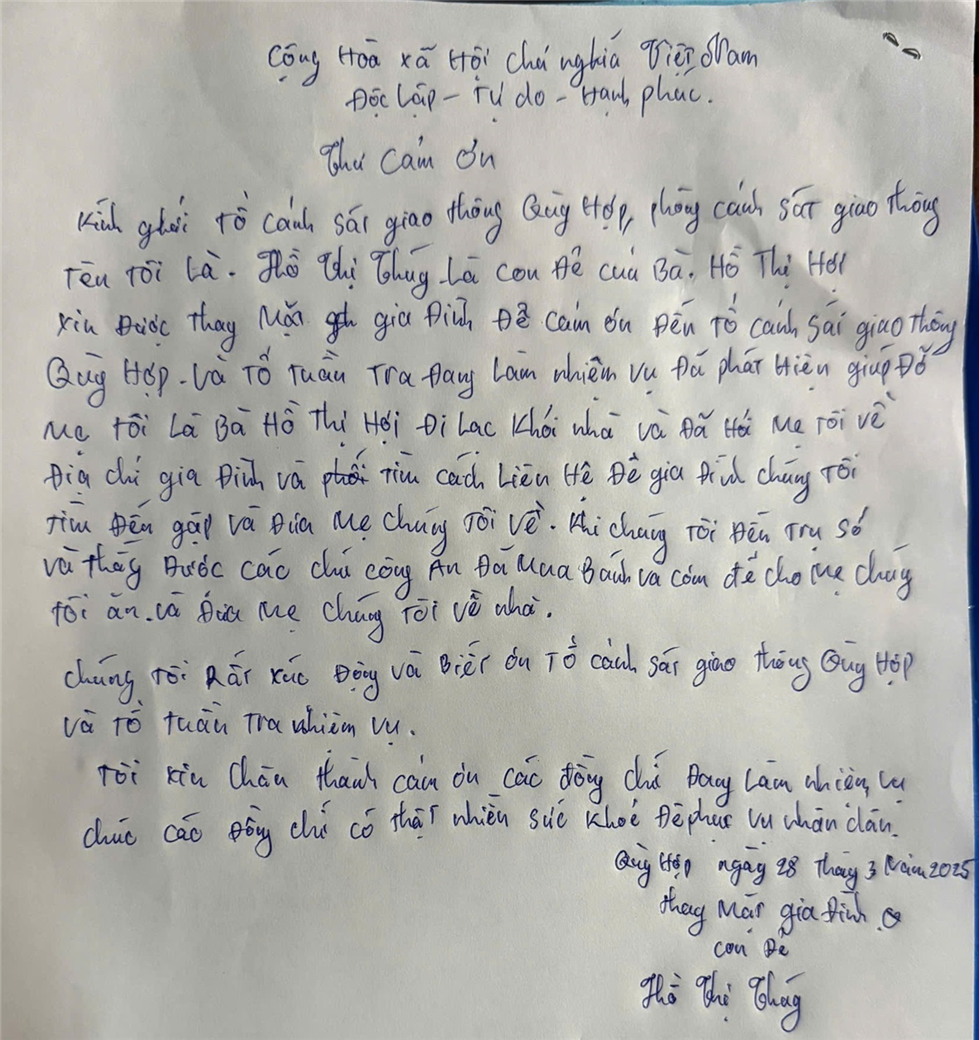 Cộng Hòa xã Hội chủ nghĩa Việt Nam
Độc lập - Tự do - Hạnh phúc.
Thư cảm ơn
Kính ghởi Tổ cảnh sát giao thông Quỳ Hợp, phòng cảnh sát giao thông
Tên tôi là. Hồ Thị Thúy Là con đẻ của Bà. Hồ Thị Hợi
xin được thay Mặt gia Đình Để cảm ơn Đến Tổ cảnh sát giao thông
Quỳ Hợp - Và Tổ tuần Tra đang làm nhiệm vụ Đã phát Hiện giúp Đỡ
Mẹ tôi Là Bà Hồ Thị Hợi Đi Lạc khỏi nhà và Đã Hỏi Mẹ Tôi về
Địa chỉ gia Đình và tìm cách Liên Hệ Để gia Đình chúng Tôi
tìm Đến gặp và Đưa Mẹ chúng Tôi về. Khi chúng Tôi Đến Trụ Sở
và thấy Được các chú công An Đã Mua Bánh và cơm để cho Mẹ chúng
tôi ăn. và Đưa Mẹ chúng Tôi về nhà.
chúng Tôi Rất xúc Động và Biết ơn Tổ cảnh sát giao thông Quỳ Hợp
và Tổ tuần Tra nhiệm vụ.
Tôi xin chân thành cảm ơn các đồng chí Đang làm nhiệm vụ
chúc các Đồng chí có thật nhiều sức khoẻ Để phục vụ nhân dân.
Quỳ Hợp ngày 28 tháng 3 Năm 2025
thay Mặt gia Đình
con Đẻ
Hồ Thị Thúy